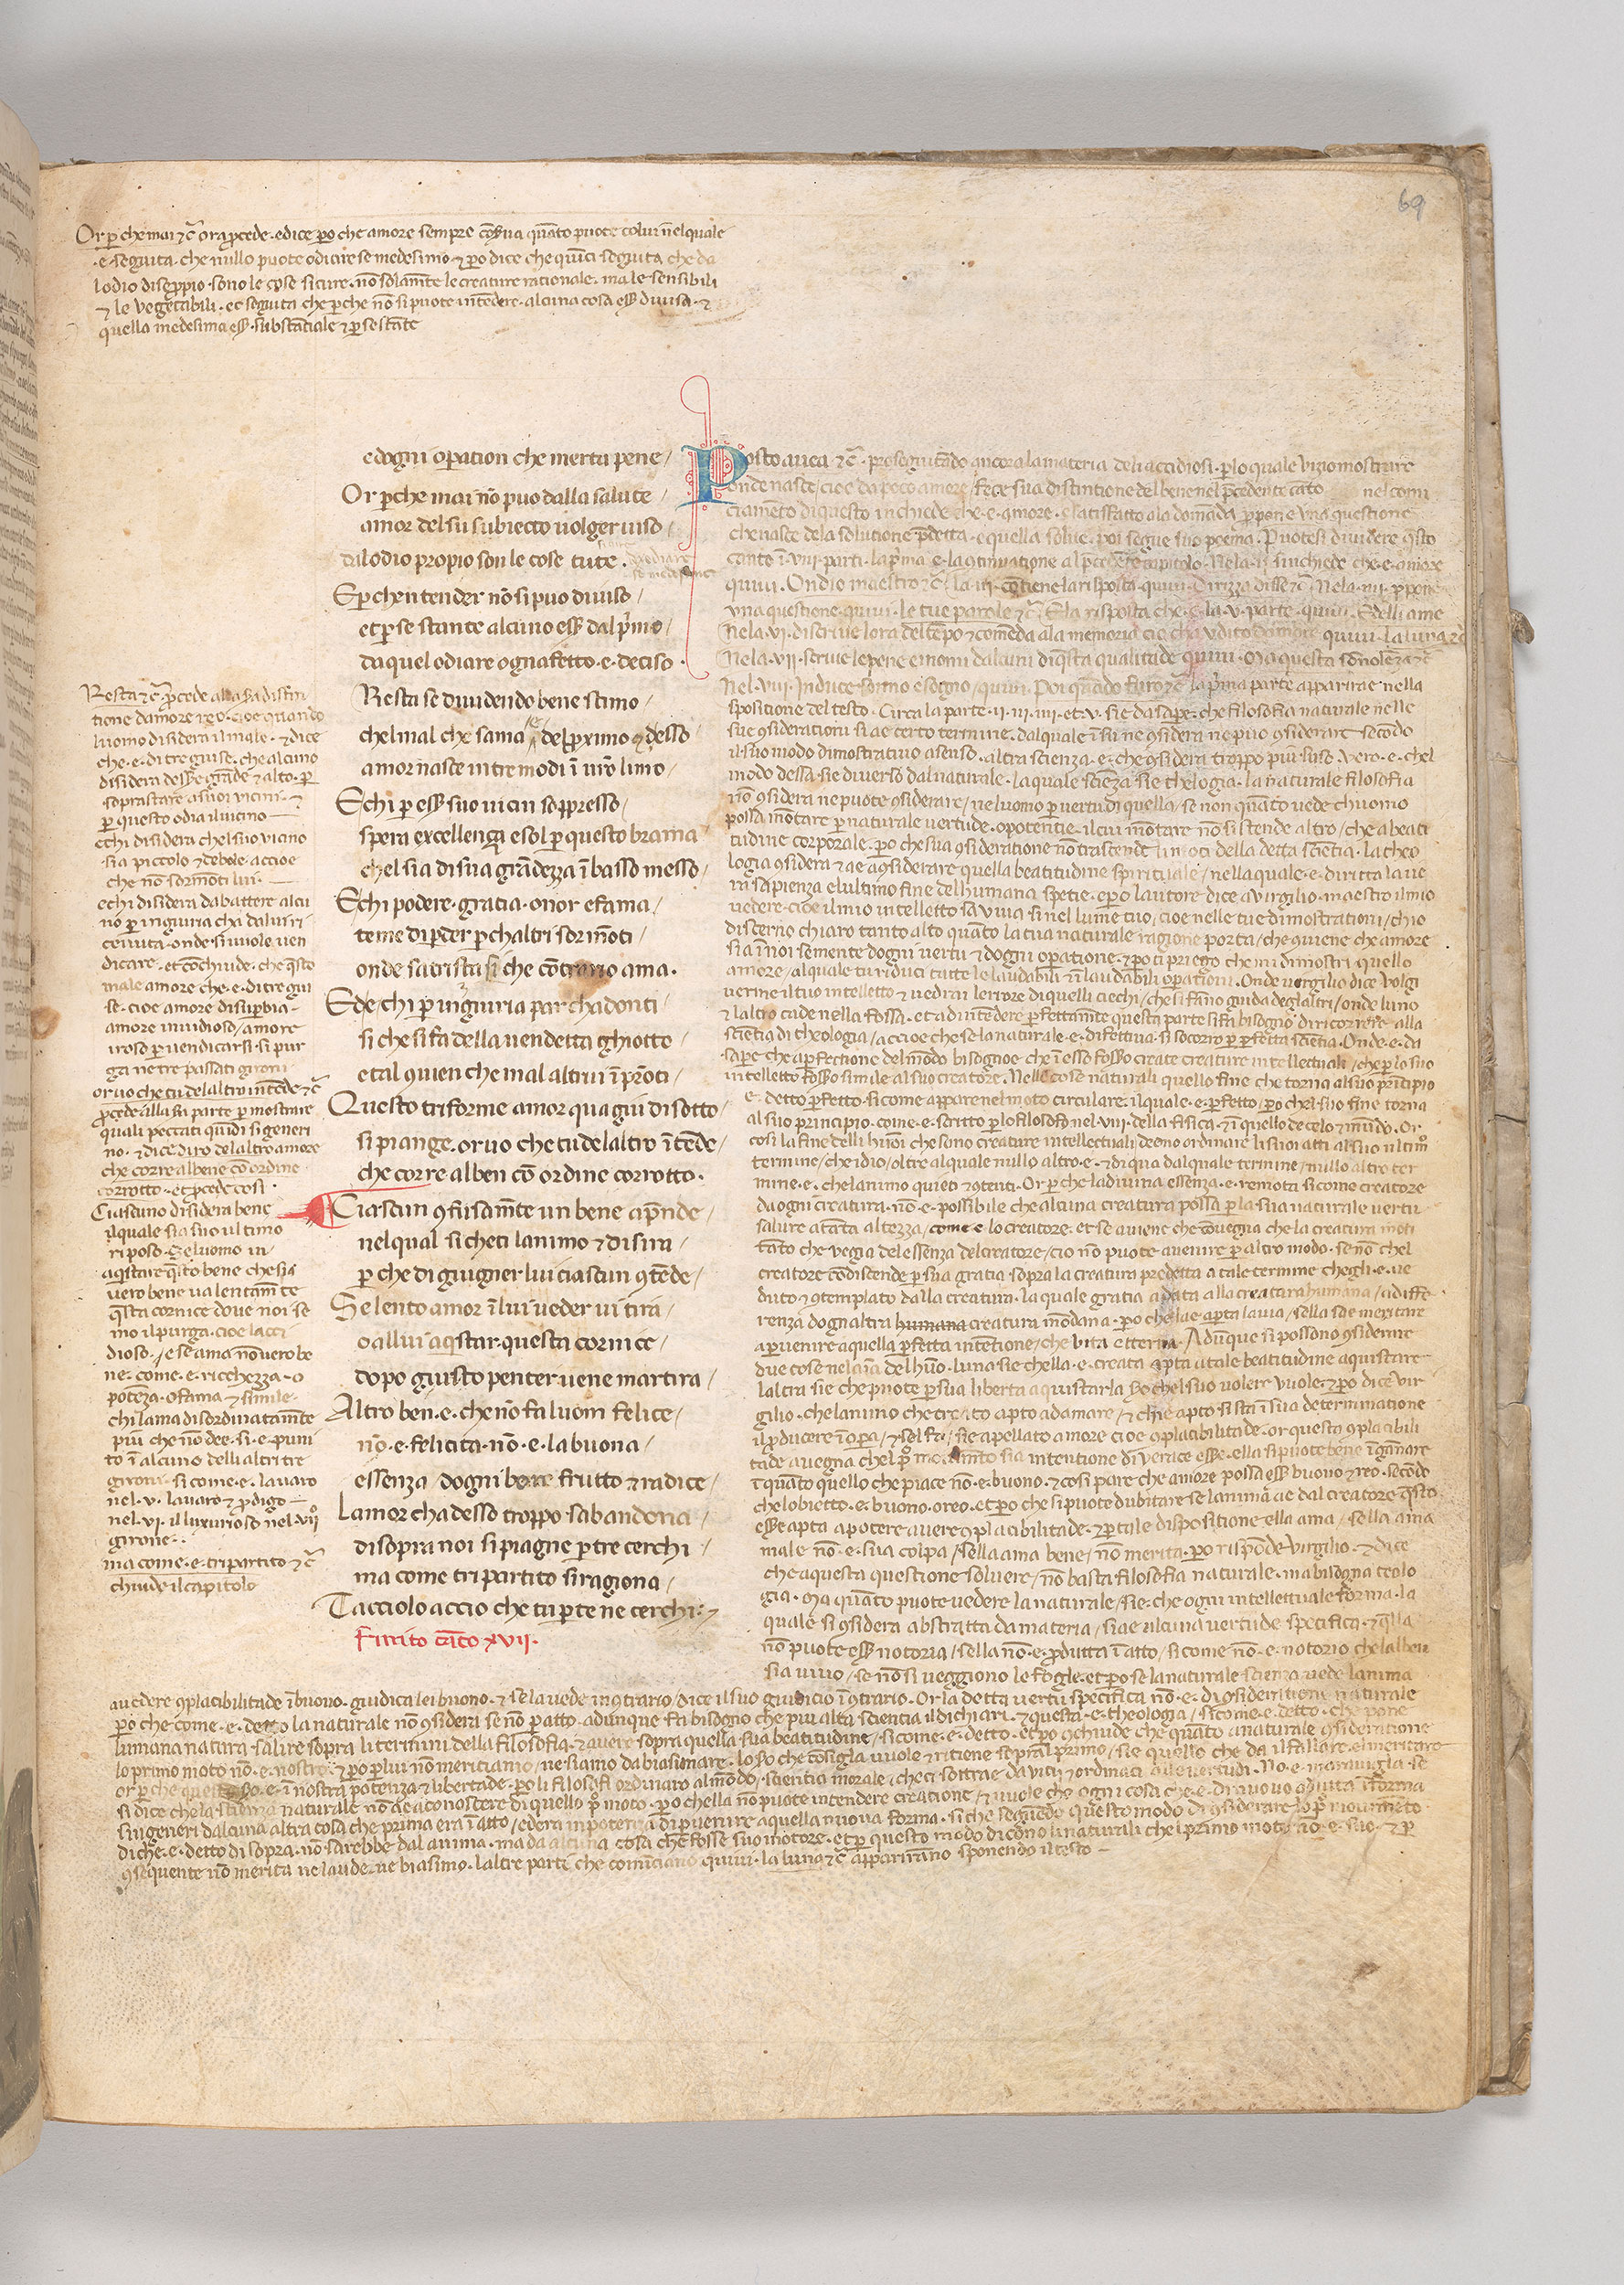 69
Or ꝑ che mai ⁊c̄ ora ꝓcede · e dice ꝑo che amore sempre
· e seguita · che nullo puote odiare se medesimo · ⁊ ꝑo dice che quinci seguita che da
lodio di se ppio · sono le cose sicure · nō solam̄te le creature racionale · ma le sensibili
⁊ le vegetabili · et seguita che ꝑche nō si puote int̄edere · alcuna cosa ess̄ divisa · ⁊
quella medesima ess̄ · substātiale ⁊ ꝑ se stāte
e dogni oꝑation che merta pene /
Or ꝑche mai nō puo dalla salute /
amor del su subiecto volger viso /
dal odio propio son le cose tute ·
E ꝑche ntender nō si puo diviso /
et ꝑ se stante alcuno ess̄ dal p̄mo /
da quel odiare ogna fetto · e · deciso ·
Resta se dividendo bene stimo /
chel mal che sama / e del ꝓximo desso /
amor nasce in tre modi ī vr̄o limo /
E chi ꝑ ess̄ suo vicin soppresso /
spera excellença e sol ꝑ questo brama
chel sia di sua grādezza ī basso messo /
E chi podere · gratia · onor e fama /
teme di ꝑder ꝑ chaltri sormōti /
onde satrista si che cōtrario ama ·
Ed e / chi ꝑ ingiuria par chadonti /
si che si fa della vendetta ghiotto /
e tal ꝯvien che mal altrui ī prōti /
Questo triforme amor qua giu disotto /
si piange · or vo che tu del altro ītēde /
che corre al ben cō ordine corrotto ·
Ciascun ꝯfusam̄te un bene apr̄nde /
nel qual si cheti lanimo ⁊ disira /
ꝑ che di giugner lui ciascun ꝯtēde /
Se lento amor ī lui veder vi tira /
o a llui aqstar · questa cornice /
dopo giusto penter ve ne martira /
Altro ben · e · che nō fa luom felice /
nō · e felicita · nō · e · la buona /
essenza dogni bene frutto ⁊ radice /
Lamor cha desso troppo sabandona /
di sopra noi si piagne ꝑ tre cerchi /
ma come tripartito si ragiona /
Tacciolo accio che tu ꝑ te ne cerchi
Finito cāto xvii ·
Resta ⁊c̄ ꝓcede alla
tione damore reo · cioe quando
luomo disidera il male · ⁊ dice
che · e · di tre guise · che alcuno
disidera dess̄e grāde ⁊ alto · ꝑ
soprastare a suoi vicini · ⁊
ꝑ questo odia il vicino
e chi disidera chel suo vicino
sia piccolo ⁊ debole · accioe
che nō sormōti lui ·
e chi disidera dabattere alcu
no ꝑ ingiuria cha da lui ri
ceuuta · onde si vuole ven
dicare · et cōchiude · che q̄sto
male amore che · e · di tre gui
se · cioe amore di suꝑbia ·
amore invidioso / amore
iroso ꝑ vendicarsi · si pur
ga ne tre passati gironi ·
or vo che tu del altro intēde ⁊c̄
ꝓcede alla parte ꝑ mostrare
quali peccati quīdi si generi
no · ⁊ dice diro de laltro amore
che corre al bene cō ordine
corrotto · et ꝓcede cosi ·
Ciascuno disidera bene
il quale sia suo ultimo
riposo · Se luomo in
aqstare q̄sto bene che sia
vero bene va lentam̄te
q̄sta cornice dove noi se
mo il purga · cioe lacci
dioso · / e se ama nō vero be
ne · come · e · ricchezza · o
poteza · o fama ⁊ simile ·
chi lama disordinatam̄te
piu che nō dee · si · e · puni
to ī alcuno delli altri tre
gironi · si come · e · lavaro
nel · v · lavaro ⁊ ꝓdigo
nel · vi · il luxurioso nel · vii°
girone ·
ma come · e · tripartito ⁊c̄
chiude il capitolo
Posto avea ⁊c̄ · proseguitādo ancora la materia deli accidiosi · ꝑ lo quale vizio mostrare
onde nasce / cioe da poco amore / fece sua distintione del bene nel p̄cedente cāto nel comi
ciamēto di questo inchiede che · e · amore · e satisfatto ala domāda ꝓpone una questione
che nasce dela solutione p̄detta · e quella solve · poi segue suo poema · Puotesi dividere q̄sto
quivi · Ondio maestro ⁊c̄ · la · iii · cōtiene la risposta · quivi · Dirizza disse ⁊c̄ · Nela · iiii · ꝓpone
una questione · quivi · le tue parole ⁊c̄ · E la risposta che · e · la · v · parte · quivi · Ed elli a me
Nela · vi · discrive lora del tēpo ⁊ comēda ala memoria cio cha udito quivi · La luna ⁊c̄
Nela · vii · scrive le pene e i nomi dalcuni di q̄sta qualitade quivi · Ma questa sōnolēza ⁊c̄
Nel · viii · Induce sōnno e sogno / quivi · Poi quādo furo ⁊c̄ la p̄ma parte apparirae nella
spositione del testo · Circa la parte · ii · iii · iiii · et · v · sie da saꝑe · che filosofia naturale nelle
sue ꝯsiderationi si ae certo termine · dal quale ī su ne ꝯsidera ne puo ꝯsiderare secōdo
il suo modo dimostrativo a senso · altra scienza · e · che ꝯsidera troppo piu suso · vero · e · chel
modo dessa · sie diverso dal naturale · la quale sciēza · sie theologia · la naturale filosofia
nō ꝯsidera ne puote ꝯsiderare / nel uomo ꝑ vertu di quella / se non quāto vede chuomo
possa mōtare ꝑ naturale vertude · o potentie · il cui mōtare nō si stende altro / che a beati
tudine corporale · ꝑo che sua ꝯsideratione nō trascende della detta sciētia · la theo
logia ꝯsidera ⁊ ae a ꝯsiderare quella beatitudine spirituale / nella quale · e · diritta la ve
ra sapienza e lultimo fine dell humana spetie · e ꝑo lautore dice a Virgilio · maestro il mio
vedere · cioe il mio intelletto savviva si nel lume tuo / cioe nelle tue dimostrationi / chio
discerno chiaro tanto alto quāto la tua naturale ragione porta / che ꝯviene che amore
sia ī noi semente dogni vertu ⁊ dogni oꝑatione · ⁊ ꝑo ti priego che mi dimostri quello
amore / al quale tu riduci tutte le laudabili ⁊ īlaudabili oꝑationi · Onde Vergilio dice volgi
verme il tuo intelletto ⁊ vedrai lerrore di quelli ciechi / che si fāno guida degl altri / onde luno
⁊ laltro cade nella fossa · et ad intēdere ꝑfettam̄te questa parte si fa bisogno di ricorrere alla
sciētia di theologia / accioe che se la naturale · e · difettiva · si socorra ꝑ ꝑfetta sciētia · Onde · e · da
saꝑe · che a ꝑfectione del mōdo bisognoe che ī esso fossō create creature intellectuali / che ꝑ lo suo
intelletto fossō simile al suo creatore · Nelle cose naturali quello fine che torna al suo p̄ncipio
e · detto ꝑfetto · si come appare nel moto circulare · il quale · e · ꝑfetto / ꝑo chel suo fine torna
al suo principio · come · e · scritto ꝑ lo filosofo nel · viii · della fisica · ⁊ ī quello de celo ⁊ mūdo · Or
cosi la fine delli huōi che sono creature intellectuali deono ordinare li suoi atti al suo ultimo
termine / che idio / oltre al quale nullo altro · e · ⁊ di qua dal quale termine / nullo altro ter
mine · e · chelanimo quieti ⁊ ꝯtenti · Or ꝑ che la divina essenza · e · remota si come creatore
da ogni creatura · nō · e · possibile che alcuna creatura possa ꝑ la sua naturale vertu
salire a tāta altezza / come · e · lo creatore · et se aviene che cōvegna che la creatura mōti
tāto che vegia del essenza del creatore / cio nō puote avenire ꝑ altro modo · se nō chel
creatore cōdiscende ꝑ sua gratia sopra la creatura predetta a tale termine chegli · e · ve
duto ⁊ ꝯtemplato dalla creatura · la quale gratia a data alla creatura humana / a diffe
renza dognaltra humana creatura mōdana · ꝑo che le ae aꝑta la via / sella sae meritare
a ꝑvenire a quella ꝑfetta intētione / che vita etterna · Adūque si possono ꝯsiderare
due cose nel aīa del huō · luna sie chella · e · creata apta a tale beatitudine aquistare
laltra sie che puote ꝑ sua liberta aquistarla se chel suo volere vuole · ⁊ ꝑo dice Vir
gilio · chelanimo che creato apto ad amare / ⁊ chie apto · si sta ī sua determinatione
tade avegna chel intentione di verace esse · ella si puote bene īgānare
ī quāto quello che piace nō · e · buono · ⁊ cosi pare che amore possa ess̄ buono ⁊ reo · secōdo
chelobietto · e · buono · o reo · et ꝑo che si puote dubitare se lanima ae dal creatore q̄sto
ess̄e apta a potere avere ꝯplacibilitade · ⁊ ꝑ tale dispositione ella ama / sella ama
male nō · e · sua colpa / sella ama bene / nō merita · ꝑo rispōde Virgilio · ⁊ dice
che a questa questione solvere / nō basta filosofia naturale · ma bisogna teolo
gia · Ma quāto puote vedere la naturale / sie · che ogni intellettuale forma · la
quale si ꝯsidera abstratta da materia / si ae alcuna vertude specifica · ⁊ q̄lla
nō puote ess̄ notoria / sella nō · e · ꝓdutta ī atto / si come nō · e · notorio chelalbero
sia vivo / se nō si veggiono le foglie · et ꝑo se la naturale scienza vede lanima
avedere ꝯplacibilitade ī buono · giudica lei buono · ⁊ se la vede in ꝯtrario / dice il suo giudicio ī ꝯtrario · Or la detta vertu specifica nō · e · di ꝯsideratione naturale
ꝑo che come · e · detto la naturale nō ꝯsidera se nō ꝑ atto · adunque fa bisogno che piu alta scientia il dichiari · ⁊ questa · e · theologia / si come · e · detto · che pone
lumana natura salire sopra li termini della filosofia · ⁊ avere sopra quella sua beatitudine / si come · e · detto · et ꝑo ꝯchiude che quāto a naturale ꝯsideratione
lo primo moto nō · e · nostro · ⁊ ꝑo ꝑ lui nō meritiamo / ne siamo da biasimare · lo che cōsigla vuole ⁊ ritiene sopral primo / sie quello che da il fallare e l meritare
or ꝑ che · e · ī nostra potenza ⁊ libertade · ꝑo li filosofi ordinaro al mōdo / scientia morale / che ci sottrae da vitii ⁊ ordinaci ale vertudi · No · e · maraviglia se
si dice che la scienza naturale nō ae a conoscere di quello moto · ꝑo chella nō puote intendere creatione / ⁊ vuole che ogni cosa che · e · di nuovo forma
singeneri dalcuna altra cosa che prima era ī atto / ed era in potenza di ꝑvenire a quella nuova forma · si che seguēdo questo modo di ꝯsiderare
di che · e · detto di sopra · nō sarebbe dal anima · ma da alcuna cosa che fosse suo motore · et ꝑ questo modo dicono li naturali chel primo moto nō · e · suo · ⁊ ꝑ
ꝯsequente nō merita ne laude · ne biasimo · laltre parti che comīciano quivi · la luna ⁊c̄ appariranno sponendo il testo